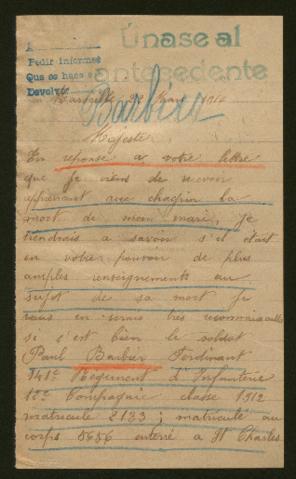 Únase al
antecedente
A
Pedir informes
Que se haga s
Devolver
Mars 1916
Barbier
Majesté
En reponse a votre lettre
que je viens de recevoir
apprenant avec chagrin la
mort de mon mari, je
tiendrais a savoir s'il était
en votre pouvoir de plus
amples renseignements au
sujet de sa mort je
vous en serais tres reconnaissante
si s'est bien le soldat
Paul Barbier Ferdinant
141e Regiment d'Infanterie
12e Compagnie classe 1912
matricule 2133; matricule au
corps 5656 enterré a St Charles